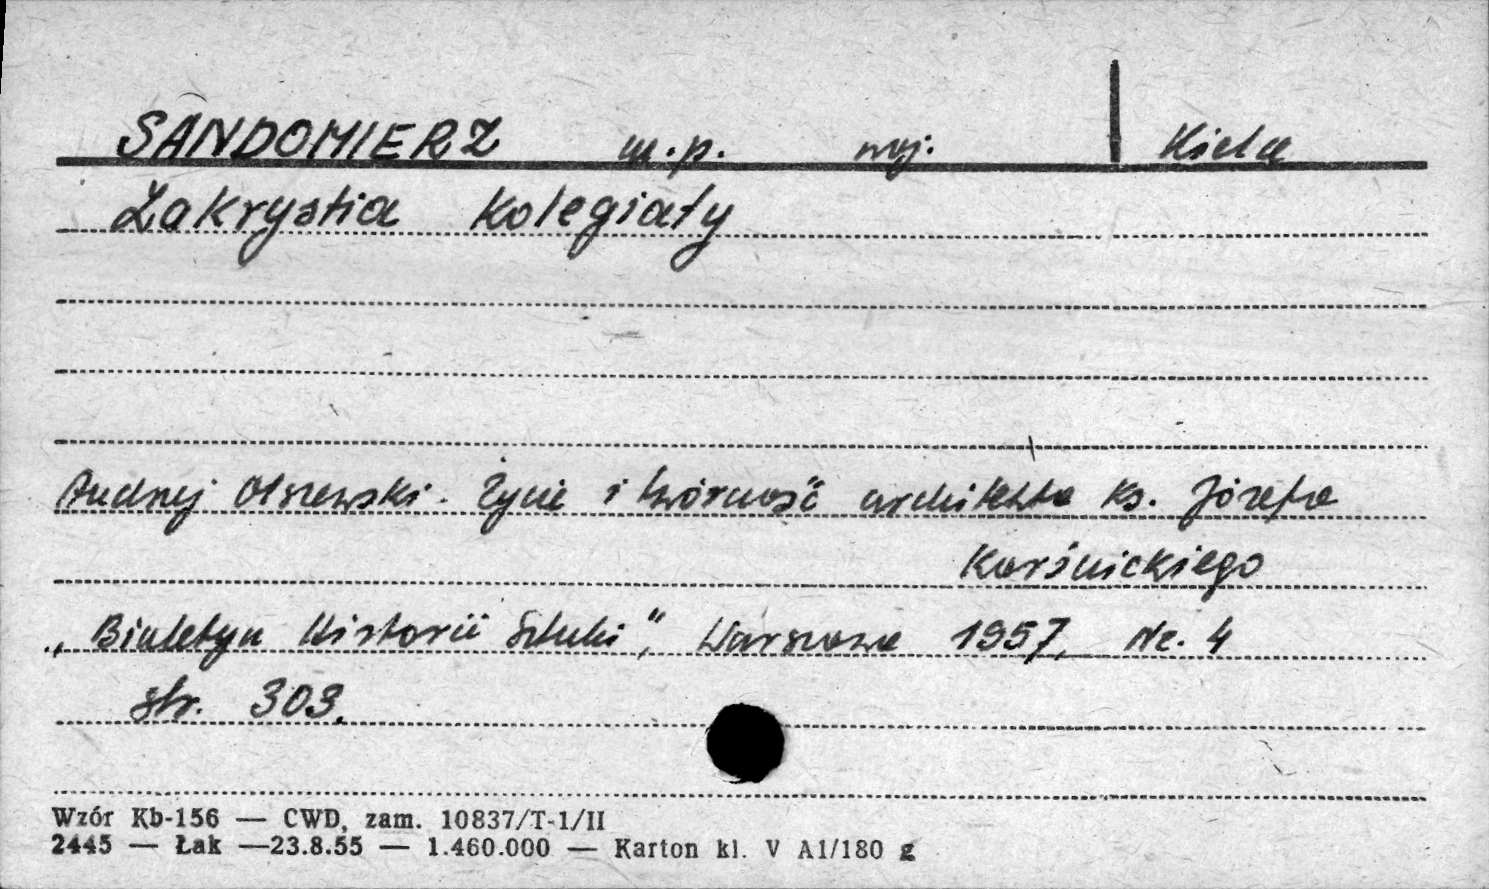 SANDOMIERZ m.p. woj. Kielce
Zakrystia Kolegiaty
Andrzej Olszewski. Życie i twórczość architekta ks. Józefa
Karśnickiego
„Biuletyn Historii Sztuki”, Warszawa 1957, Nr. 4
str. 303.
Wzór Kb-156 — CWD, zam. 10837/T-1/II
2445 — Łak —23.8.55 — 1.460.000 — Karton kl. V A1/180 g